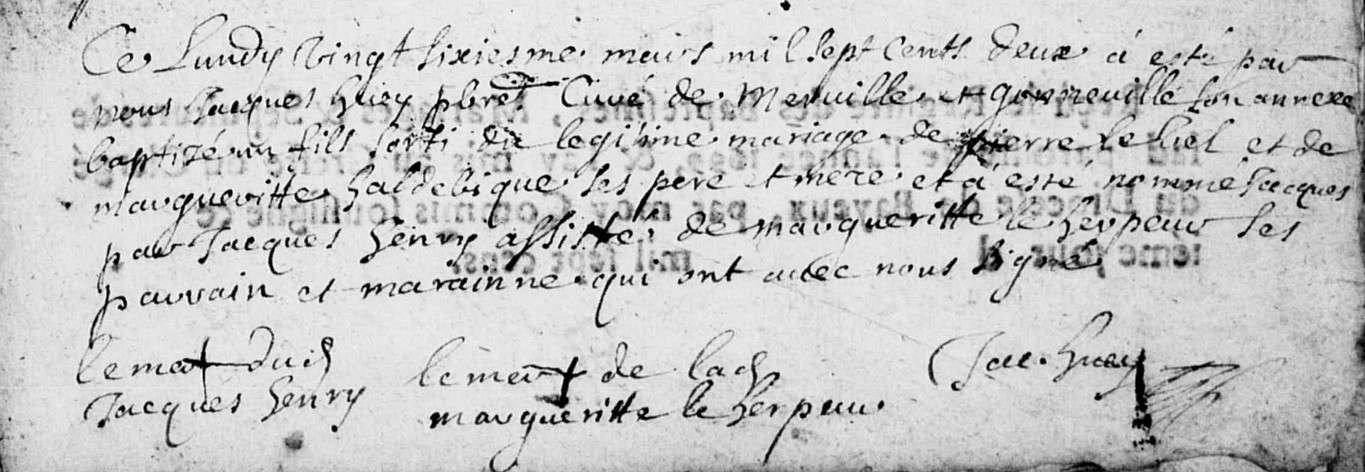 Ce Lundy vingt sixiesme mars mil sept cents deux á esté par
nous Jacques huey pbre Curé de Merville et gonneville son annexe
baptizé un fils sorti du legitime mariage de pierre le hel et de
margueritte haldebique ses pere et mere et a esté nommé Jacques
par Jacques henry assisté de margueritte le herpeur ses
parrain et marainne qui ont avec nous signé
le mer dud
Jacques henry
le mer de lad
margueritte le herpeur
Jac. huey